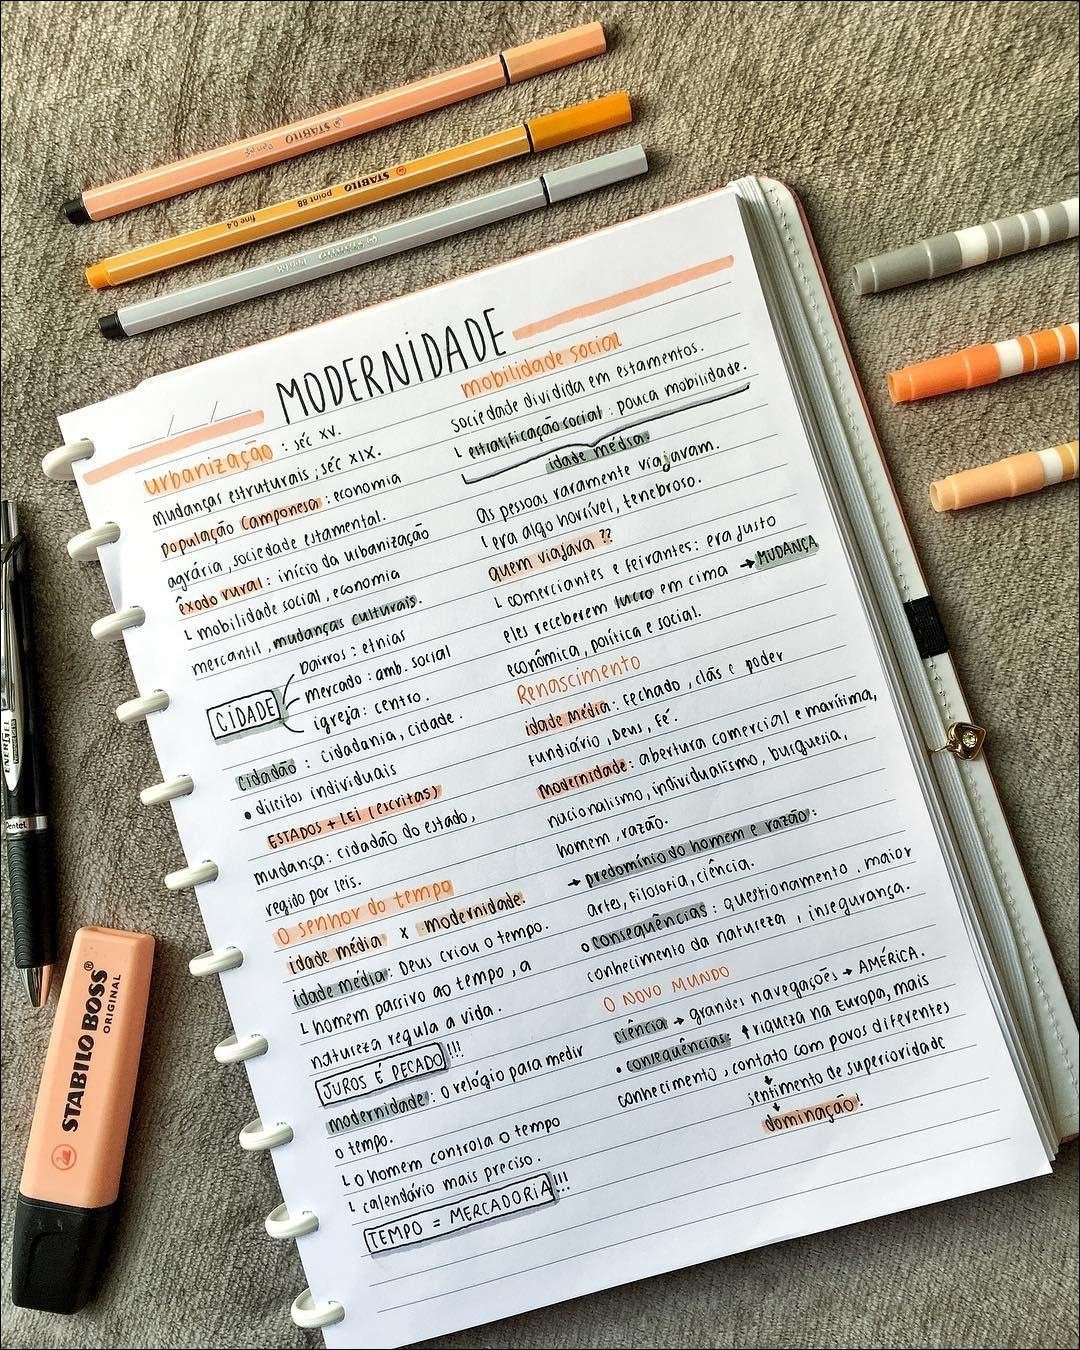 STABILO
STABILO point 88 fine 0,4
STABILO
MODERNIDADE
/ /
urbanização : séc XV.
mudanças estruturais, séc XIX.
população camponesa : economia
agrária, sociedade estamental.
êxodo rural : início da urbanização
└ mobilidade social, economia
mercantil, mudanças culturais.
CIDADE
bairros : etnias
mercado : amb. social
igreja : centro.
cidadão : cidadania, cidade.
• direitos individuais
ESTADOS + LEI (escritas)
mudança : cidadão do estado,
regido por leis.
O senhor do tempo
idade média x modernidade.
idade média : Deus criou o tempo.
└ homem passivo ao tempo, a
natureza regula a vida.
JUROS É PECADO !!!
modernidade : o relógio para medir
o tempo.
└ o homem controla o tempo
└ calendário mais preciso.
TEMPO = MERCADORIA !!!
mobilidade social
sociedade dividida em estamentos.
└ estratificação social : pouca mobilidade.
idade média.
As pessoas raramente viajavam.
└ era algo horrível, tenebroso.
quem viajava ??
└ comerciantes e feirantes : era justo
eles receberem lucro em cima → MUDANÇA
econômica, política e social.
Renascimento
idade média : fechado, clãs e poder
fundiário, Deus, fé.
modernidade : abertura comercial e marítima,
nacionalismo, individualismo, burguesia,
homem, razão.
→ predomínio do homem e razão :
artes, filosofia, ciência.
o consequências : questionamento, maior
conhecimento da natureza, insegurança.
O NOVO MUNDO
ciência → grandes navegações → AMÉRICA.
• consequências : ↑ riqueza na Europa, mais
conhecimento, contato com povos diferentes
↓
sentimento de superioridade
↓
dominação!
ENERGEL
Pentel
STABILO BOSS®
ORIGINAL